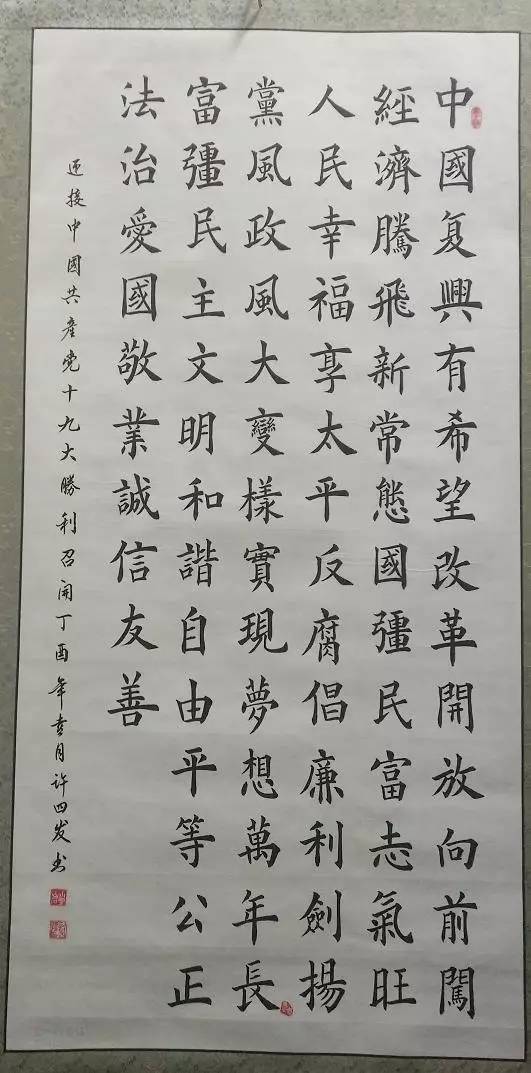 中國复興有希望改革開放向前闖
經濟騰飛新常態國彊民富志氣旺
人民幸福享太平反腐倡廉利劍揚
黨風政風大變樣實現夢想萬年長
富彊民主文明和諧自由平等公正
法治愛國敬業誠信友善
迎接中國共產党十九大勝利召開丁酉年杏月许四发书